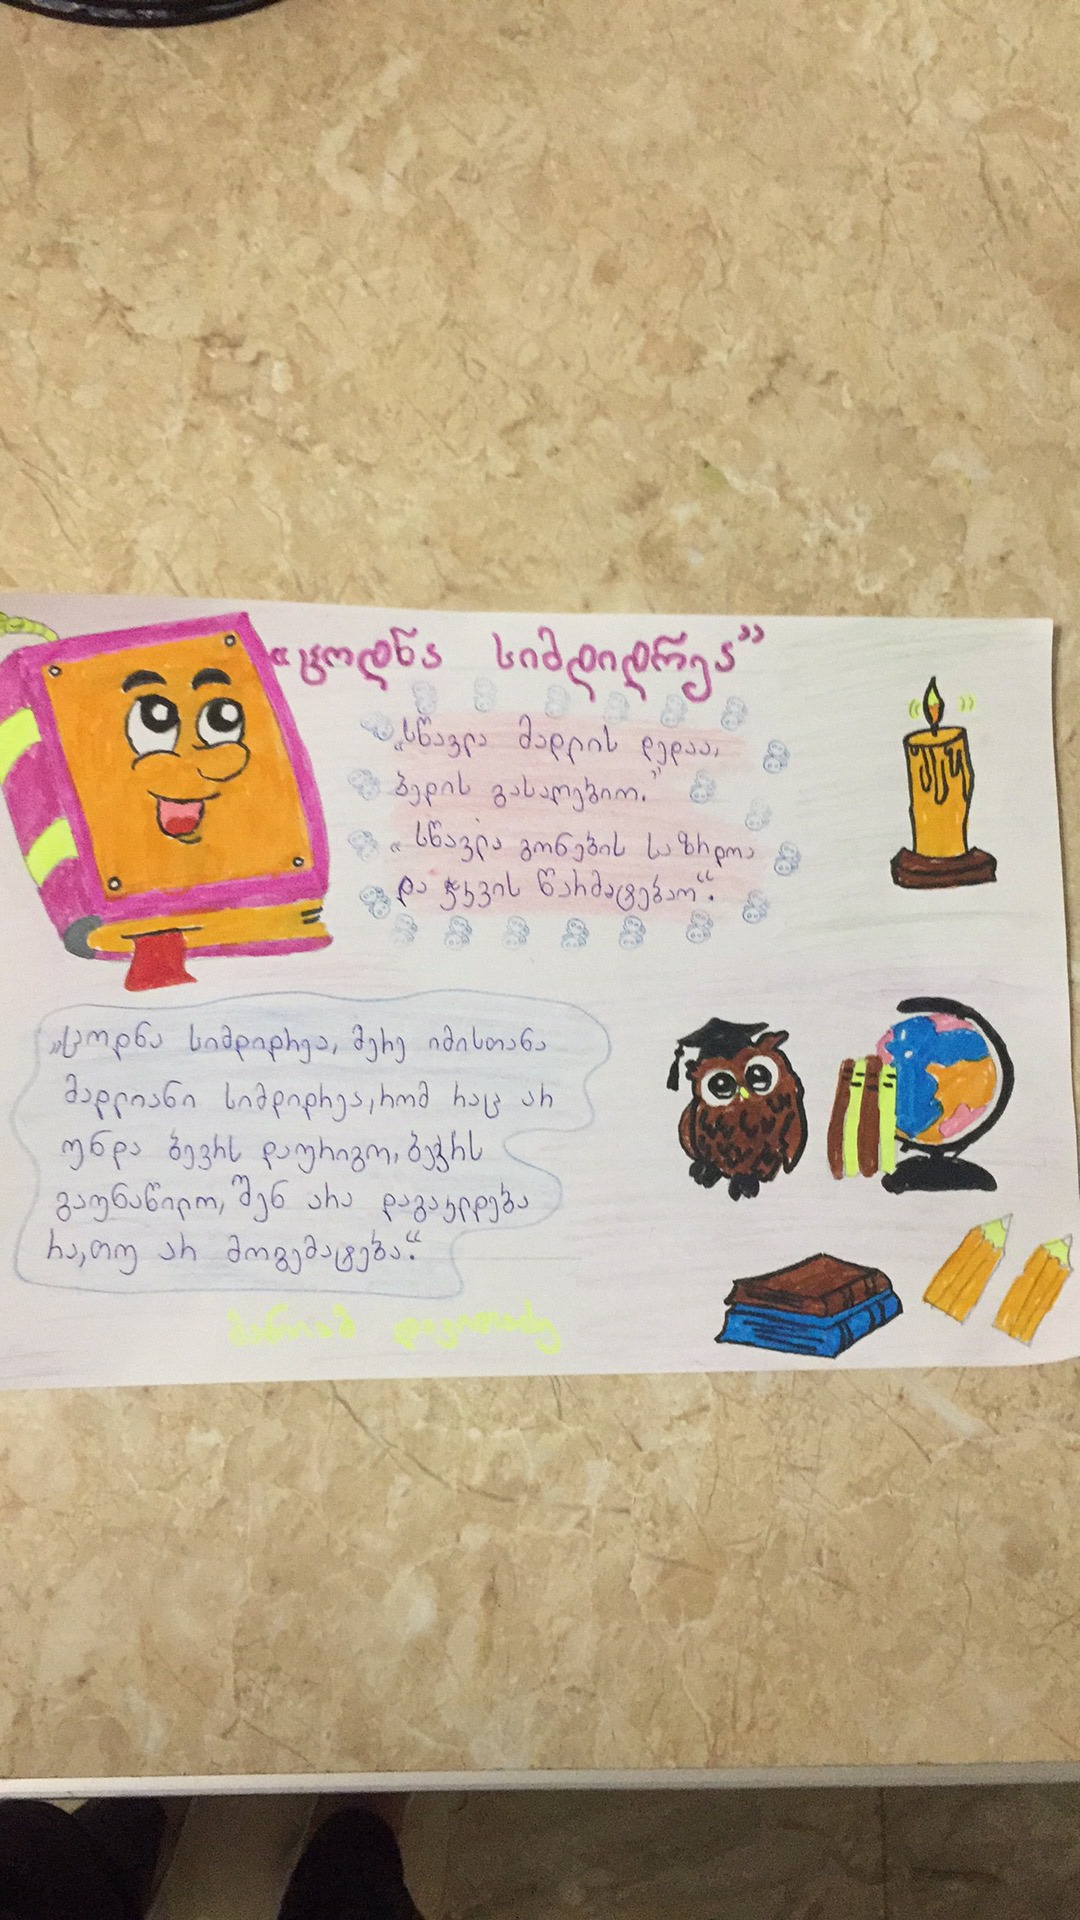 "ცოდნა სიმდიდრეა"
„სწავლა მადლის დედაა,
ბედის გასაღებიო."
„ სწავლა გონების საზრდოა
და ჭკვის წარმატებაო“.
„ცოდნა სიმდიდრეა, მერე იმისთანა
მადლიანი სიმდიდრეა,რომ რაც არ
უნდა ბევრს დაურიგო,ბევრს
გაუნაწილო, შენ არა დაგაკლდება
რა,თუ არ მოგემატება“.
მარიამ